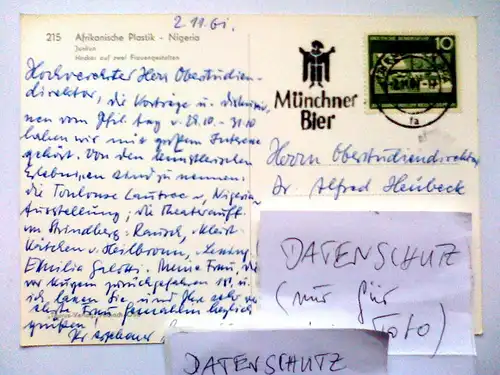 2.11.61.
215 Afrikanische Plastik - Nigeria
Junkun
Hocker auf zwei Frauengestalten
Hochverehrter Herr Oberstudien-
direktor, die Vorträge u.
nen vom Phil. Tag v 28.10.-31.10
haben wir mit großem Interesse
gehört. Von den künstlerischen
Erlebnissen sind zu nennen:
die Toulouse Lautrec u. Nigeria
Ausstellung; die Theaterauff.
Strindberg: Rausch, Kleist:
Kätchen v. Heilbronn, Lessing
Emilia Galotti. Meine Frau, die
vor kurzem zurückgefahren ist u.
ich, Sie und Ihre sehr ver-
ehrte Frau Gemahlin herzlich
grüßen!
Ihr ergebener
Münchner
Bier
10
Herrn Oberstudiendirektor
Dr. Alfred Heubeck
DATENSCHUTZ
(nur für
Foto)
DATENSCHUTZ